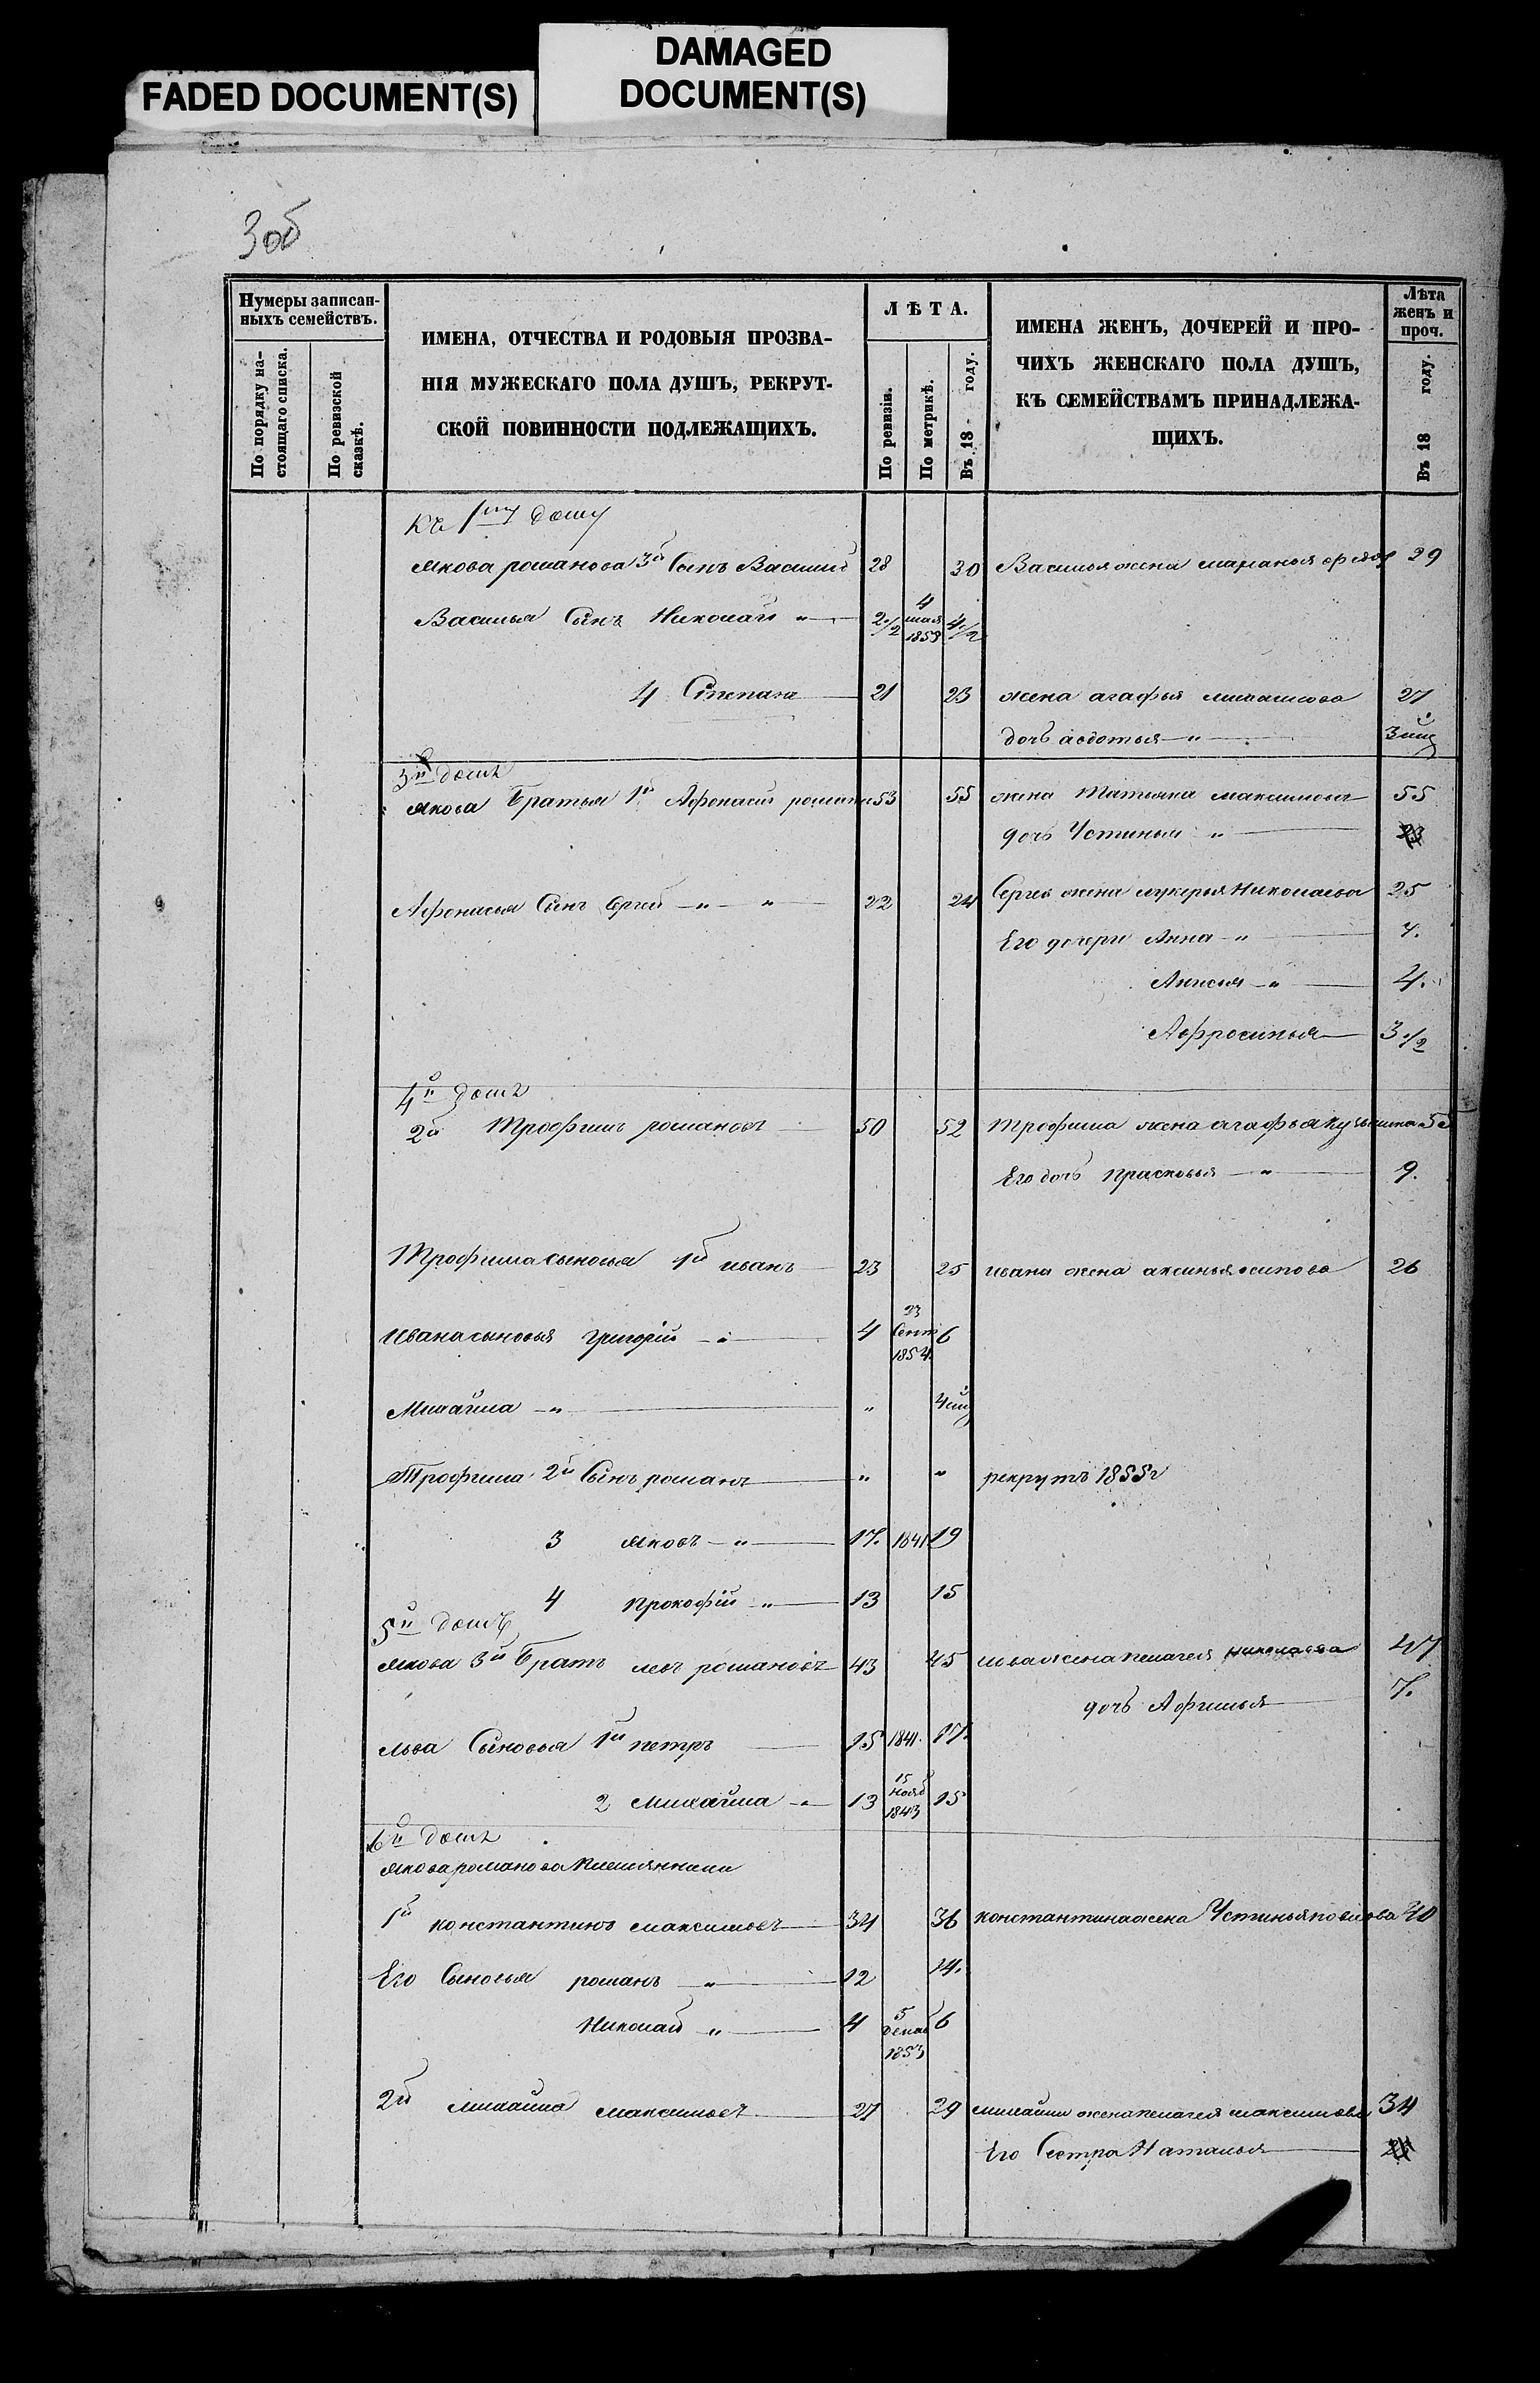 FADED DOCUMENT(S)
DAMAGED
DOCUMENT(S)
3 об
Нумеры записан-
ныхъ семействъ.
По порядку на-
стоящаго списка.
По ревизской
сказкѣ.
ИМЕНА, ОТЧЕСТВА И РОДОВЫЯ ПРОЗВА-
НІЯ МУЖЕСКАГО ПОЛА ДУШЪ, РЕКРУТ-
СКОЙ ПОВИННОСТИ ПОДЛЕЖАЩИХЪ.
ЛѢТА.
По ревизіи.
По метрикѣ.
Въ 18 году.
ИМЕНА ЖЕНЪ, ДОЧЕРЕЙ И ПРО-
ЧИХЪ ЖЕНСКАГО ПОЛА ДУШЪ,
КЪ СЕМЕЙСТВАМЪ ПРИНАДЛЕЖА-
ЩИХЪ.
Лѣта
женъ и
проч.
Въ 18 году.
Къ 1му дому
Якова романова 3й Сынъ Василий 28 30 Василья жена маланья 29
Василья Сынъ Николай " 2 1/2 4 мая 185 4 1/2
4 Степанъ 21 23 жена агафья михайлова 27
дочь авдотья " 3
3й домъ
Якова Братья 1й Афонасій романовъ 53 55 жена Татьяна максимова 55
дочь Устинья " 23
Афонасья Сынъ Сергей " " 22 24 Сергея жена лукерья Николаева 25
Его дочери Анна " 7.
Анисья " 4.
Афросинья 3 1/2
4й домъ
2й Трофимъ романовъ 50 52 Трофима жена агафья кузьмина 55
Его дочь прасковья " 9.
Трофима сыновья 1й иванъ 23 25 ивана жена аксинья осипова 26
Ивана сыновья григорій " 4 23 Сент 1854. 6
Михайла " "
Трофима 2й Сынъ романъ " " рекрутъ 1855г
3 яковъ " 17. 1841 19
4 прокофій " 13 15
5й домъ
Якова 3й Братъ левъ романовъ 43 45 льва жена пелагея николаева 47
дочь Афимья 7.
льва Сыновья 1й петръ 15 1841. 17.
2 михайла " 13 15 Нояб 1843 15
6й домъ
якова романова племянники
1й константинъ максимовъ 34 36 константина жена Устинья павлова 40
Его Сыновья романъ " 12 14.
Николай " 4 5 декаб 1853 6
2й михайла максимовъ 27 29 михайлы жена пелагея максимова 34
Его Сестра Наталья